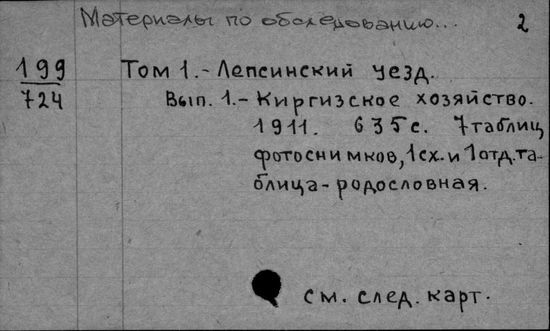 Материалы по обследованию... 2
199 Том 1.- Лепсинский уезд.
724 Вып. 1.- Киргизское хозяйство.
1911. 635 с. 7 таблиц
фотоснимков, 1 сх. и 1 отд. та-
блица - родословная.
см. след. карт.